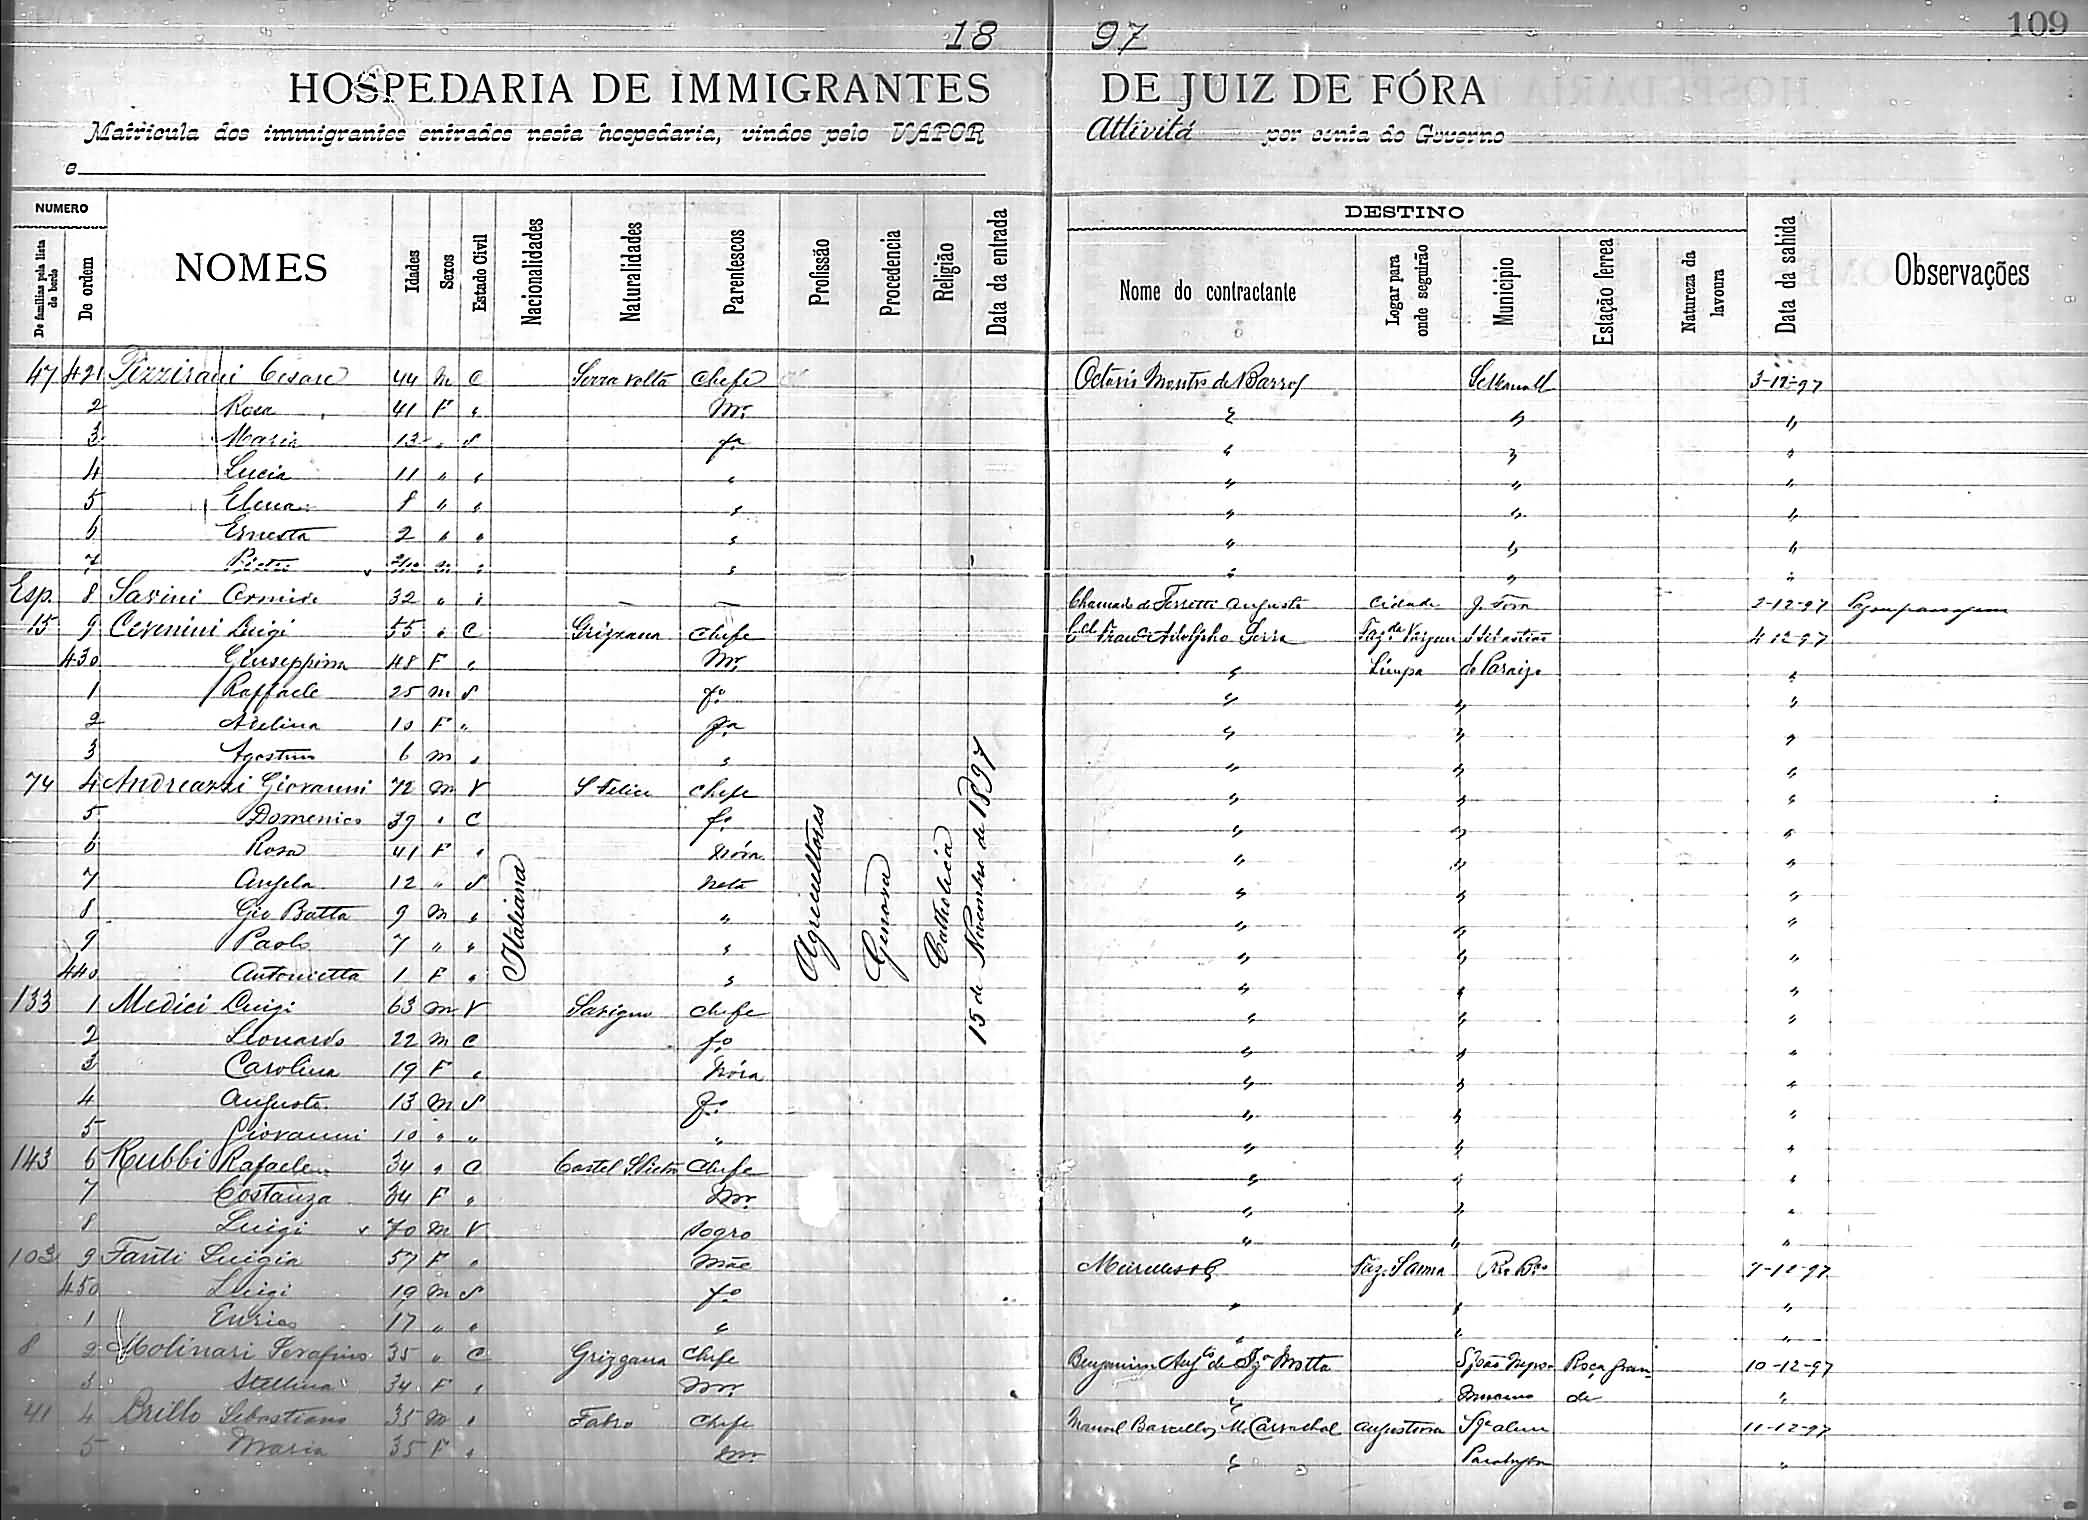 109
18 97
HOSPEDARIA DE IMMIGRANTES DE JUIZ DE FÓRA
Matricula dos immigrantes entrados nesta hospedaria, vindos pelo VAPOR Attivitá por conta do Governo
e
NUMERO
De familias pela lista de bordo
De ordem
NOMES
Idades
Sexos
Estado Civil
Nacionalidades
Naturalidades
Parentescos
Profissão
Procedencia
Religião
Data da entrada
DESTINO
Nome do contractante
Logar para onde seguirão
Municipio
Estação ferrea
Natureza da lavoura
Data da sahida
Observações
Italiana
Agricultores
Genova
Catholica
15 de Novembro de 1897
47 421 Pizzirani Cesare 44 M C Serra valta Chefe de Barros 3-12-97
2 Rosa 41 F " Mr. " " "
3 Maria 13 " S fa. " " "
4 Lucia 11 " " " " " "
5 Elena 8 " " " " " "
6 Ernesta 2 " " " " " "
7 Pietro M " " " " "
Esp. 8 Savini 32 " " — — Chamado de Ferretti Augusto Cidade J. Fóra 2-12-97
15 9 Cevenini Luigi 55 " C Grizzana Chefe Cel. Franco Adolpho Serra Faz.da Vargem S Sebastião 4-12-97
430 Giuseppina 48 F " Mr. " Limpa do Paraizo "
1 Raffaele 25 M S fo " " "
2 Avelina 10 F " fa " " "
3 Agostino 6 M " " " " "
74 4 Andreazzi Giovanni 72 M V S Felice Chefe " " "
5 Domenico 39 " C fo " " "
6 Rosa 41 F " Nóra " " "
7 Angela 12 " S Neta " " "
8 Gio Batta 9 M " " " " "
9 Paolo 7 " " " " " "
440 Antonietta 1 F " " " " "
133 1 Medici Luigi 63 M V Savigno Chefe " " "
2 Leonardo 22 M C fo " " "
3 Carolina 19 F " Nóra " " "
4 Augusto 13 M S fo " " "
5 Giovanni 10 " " " " " "
143 6 Rubbi Rafaele 34 " C Castel S Pietro Chefe " " "
7 Costanza 34 F " Mr. " " "
8 Luigi 70 M V Sogro " " "
103 9 Fanti Luigia 57 F " Mãe Meirelles & C Faz. Rio Bco 7-12-97
450 Luigi 19 M S fo " " "
1 Enrico 17 " " " " " "
8 2 Molinari Serafino 35 " C Grizzana Chefe Benjamim Augto de Motta S João Nepo- Roça gran- 10-12-97
3 Stellina 34 F " Mr. " muceno de "
41 4 Brillo Sebastiano 35 M " Chefe Manoel Barcellos M. Carvalhal 11-12-97
5 Maria 35 F " Mr. " "